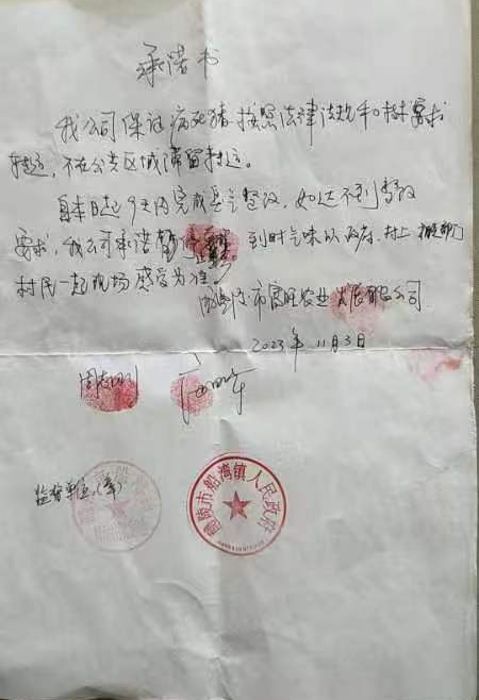 承诺书
我公司保证病死猪按照法律法规和村要求
转运，不在公共区域滞留转运。
自本日起9天内完成臭气整改，如达不到整改
要求，我公司承诺 到时气味以政府、村上
村民一起现场感受为准。
市 农业发展有限公司
2023年11月3日
监督单位（章）
醴陵市船湾镇人民政府